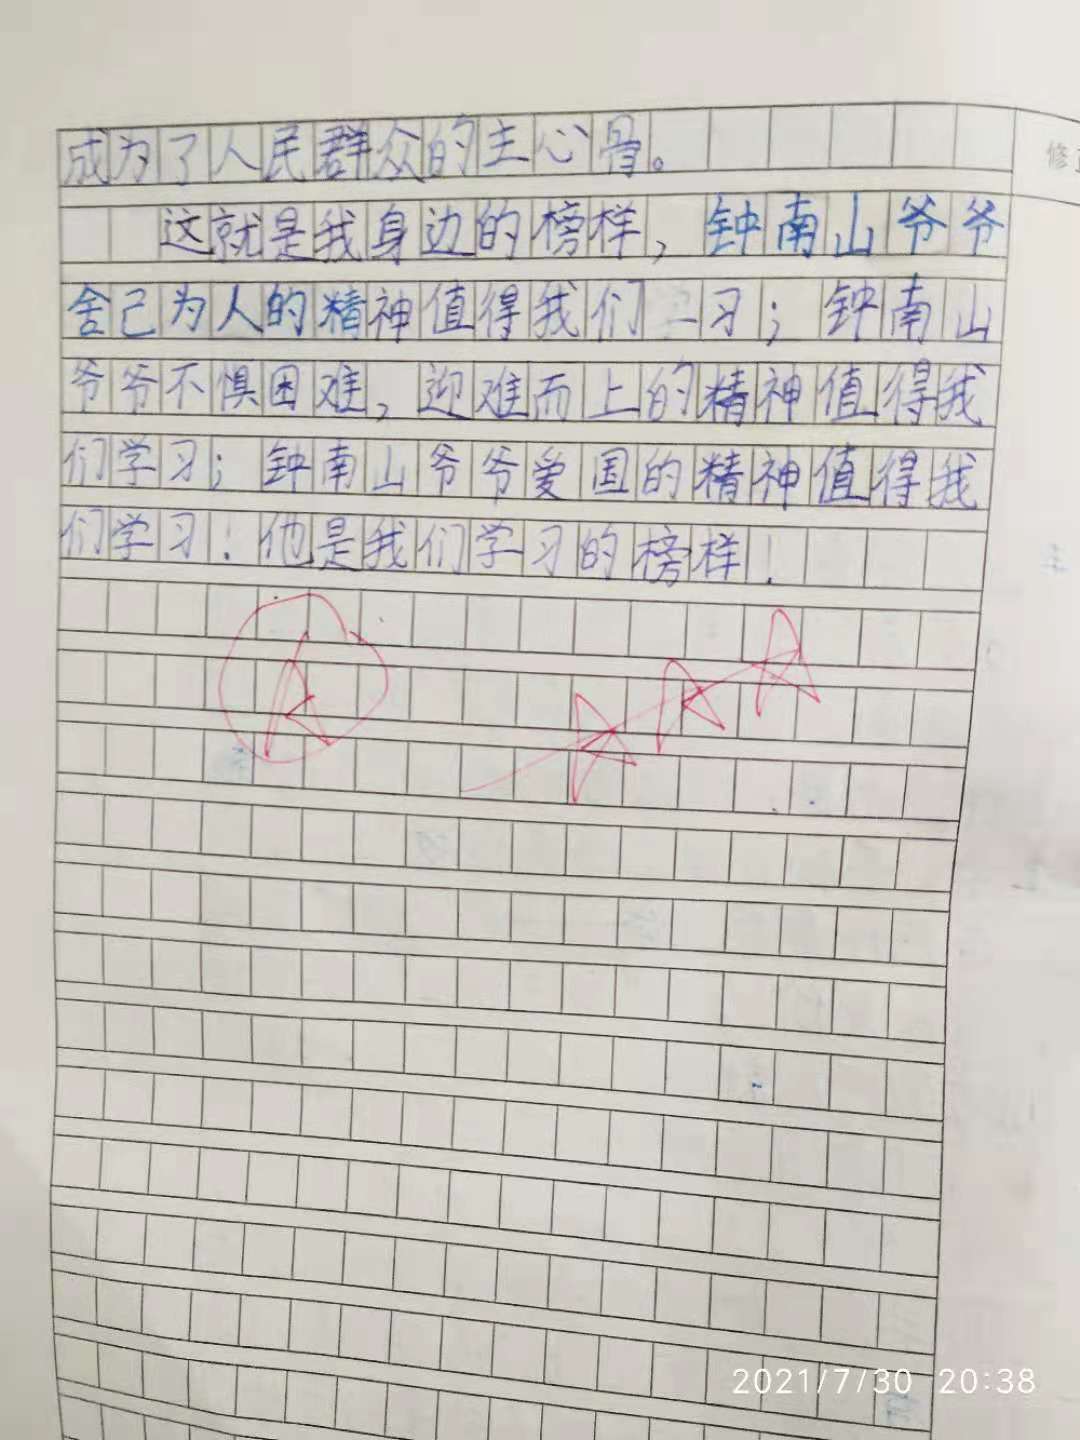 成为了人民群众的主心骨。
修
这就是我身边的榜样，钟南山爷爷
舍己为人的精神值得我们习；钟南山
爷爷不惧困难，迎难而上的精神值得我
们学习；钟南山爷爷爱国的精神值得我
们学习！他是我们学习的榜样！
A
2021/7/30 20:38